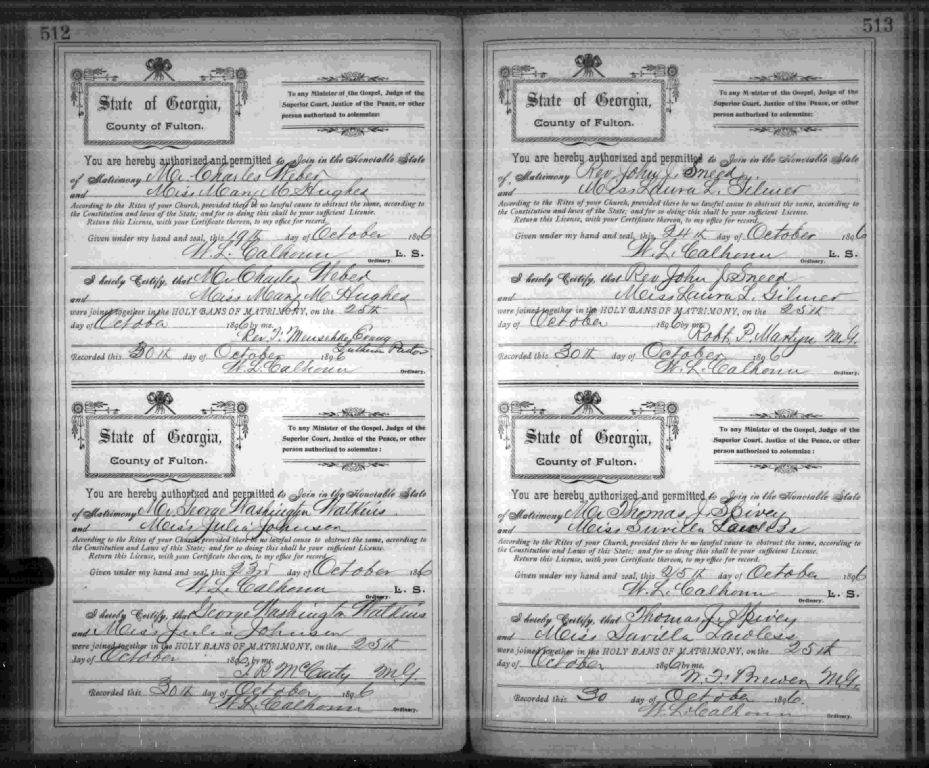 512
State of Georgia,
County of Fulton.
To any Minister of the Gospel, Judge of the
Superior Court, Justice of the Peace, or other
person authorized to solemnize:
You are hereby authorized and permitted to Join in the Honorable State
of Matrimony Mr. Charles Weber
and Miss Mary McHughes
According to the Rites of your Church, provided there be no lawful cause to obstruct the same, according to
the Constitution and laws of the State; and for so doing this shall be your sufficient License.
Return this License, with your Certificate thereon, to my office for record.
Given under my hand and seal, this 19th day of October 1896
W. L. Calhoun L. S.
Ordinary.
I hereby Certify, that Mr. Charles Weber
and Miss Mary McHughes
were joined together in the HOLY BANS OF MATRIMONY, on the 25th
day of October 1896 by me.
Rev. F. Meuschke
Lutheran Pastor
Recorded this 30th day of October 1896
W. L. Calhoun Ordinary.
State of Georgia,
County of Fulton.
To any Minister of the Gospel, Judge of the
Superior Court, Justice of the Peace, or other
person authorized to solemnize:
You are hereby authorized and permitted to Join in the Honorable State
of Matrimony Mr. George Washington Watkins
and Miss Julia Johnson
According to the Rites of your Church, provided there be no lawful cause to obstruct the same, according to
the Constitution and Laws of this State; and for so doing this shall be your sufficient License.
Return this License, with your Certificate thereon, to my office for record.
Given under my hand and seal, this 23rd day of October 1896
W. L. Calhoun L. S.
Ordinary.
I hereby Certify, that George Washington Watkins
and Miss Julia Johnson
were joined together in the HOLY BANS OF MATRIMONY, on the 25th
day of October 189 by me.
J. R. McCarty M G
Recorded this 30th day of October 1896
W. L. Calhoun Ordinary.
513
State of Georgia,
County of Fulton.
To any Minister of the Gospel, Judge of the
Superior Court, Justice of the Peace, or other
person authorized to solemnize:
You are hereby authorized and permitted to Join in the Honorable State
of Matrimony Rev. John J. Sneed
and Miss Laura L. Gilmer
According to the Rites of your Church, provided there be no lawful cause to obstruct the same, according to
the Constitution and laws of the State; and for so doing this shall be your sufficient License.
Return this License, with your Certificate thereon, to my office for record.
Given under my hand and seal, this 24th day of October 1896
W. L. Calhoun L. S.
Ordinary.
I hereby Certify, that Rev John J Sneed
and Miss Laura L. Gilmer
were joined together in the HOLY BANS OF MATRIMONY, on the 25th
day of October 1896 by me.
Robt. P. Martyn M.G.
Recorded this 30th day of October 1896
W. L. Calhoun Ordinary.
State of Georgia,
County of Fulton.
To any Minister of the Gospel, Judge of the
Superior Court, Justice of the Peace, or other
person authorized to solemnize:
You are hereby authorized and permitted to Join in the Honorable State
of Matrimony Mr. Thomas J. Spivey
and Miss Savilla Lawless
According to the Rites of your Church, provided there be no lawful cause to obstruct the same, according to
the Constitution and Laws of this State; and for so doing this shall be your sufficient License.
Return this License, with your Certificate thereon, to my office for record.
Given under my hand and seal, this 25th day of October 1896
W. L. Calhoun L. S.
Ordinary.
I hereby Certify, that Thomas J. Spivey
and Miss Savilla Lawless
were joined together in the HOLY BANS OF MATRIMONY, on the 25th
day of October 1896 by me.
N. F. Brewer M.G.
Recorded this 30 day of October 1896.
W. L. Calhoun Ordinary.